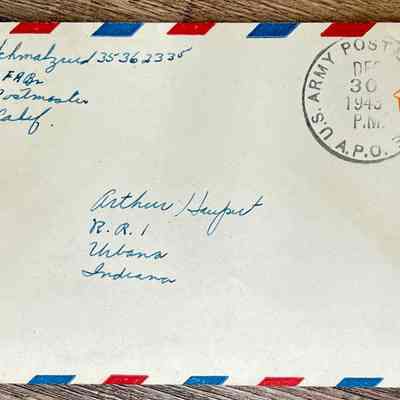 Schmalzried 35362335
FABn
Postmaster
Calif.
U.S. ARMY POST
DEC
30
1943
P.M.
A.P.O. 3
Arthur Haupert
R.R. 1
Urbana
Indiana